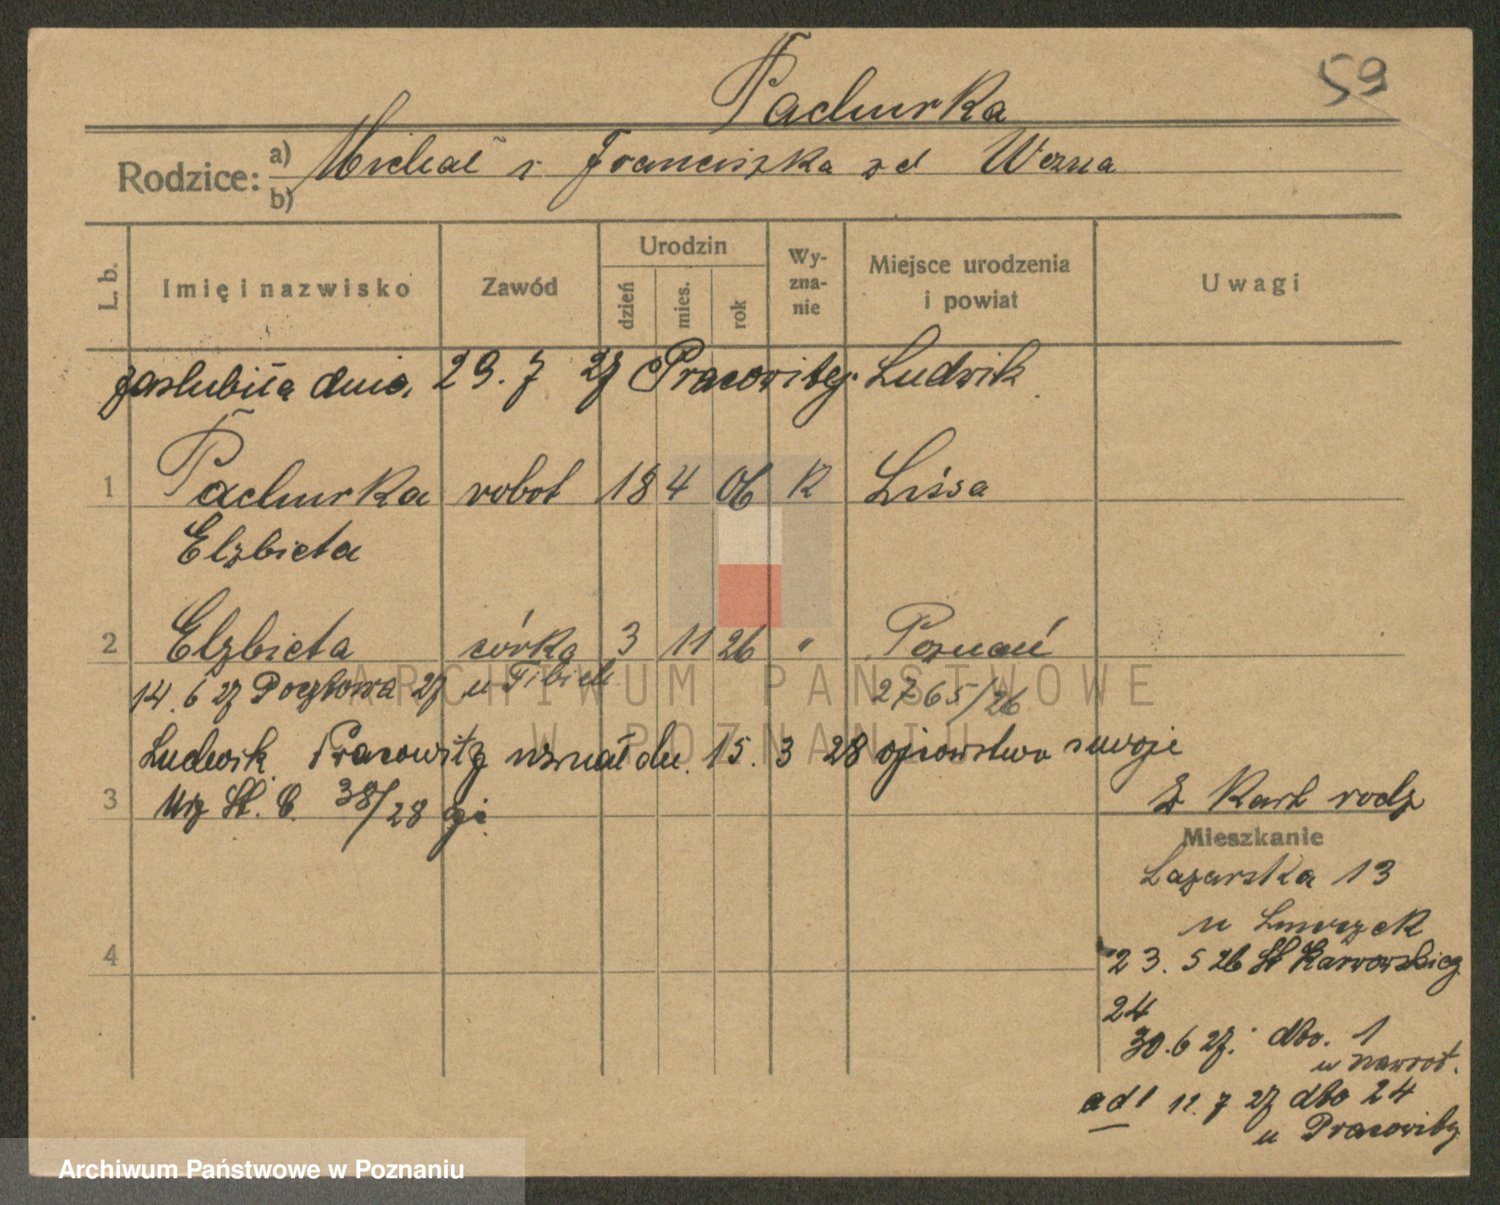 59
Pachurka
Rodzice: a) Michał i Franciszka zd
b)
L. b.
Imię i nazwisko
Zawód
Urodzin
dzień
mies.
rok
Wy-
zna-
nie
Miejsce urodzenia
i powiat
Uwagi
zaślubiła dnia 29. 7 27 Pracowity Ludwik
1 Pachurka robot 18 4 06 K Lissa
Elżbieta
2 Elżbieta córka 3 11 26 " Poznań
14. 6 27 Pocztowa 27 u
2765/26
Ludwik Pracowity uznał dn. 15. 3 28 ojcowstwo swoje
3 Urz St. C. 38/28
z Kart rodz
Mieszkanie
Łazarska 13
u
4
23. 5 26 Karwowskieg
24
30. 6 27. dto. 1
u Nawrot.
ad 1 11. 7 27 dto 24
u Pracowity
ARCHIWUM PAŃSTWOWE
W POZNANIU
Archiwum Państwowe w Poznaniu